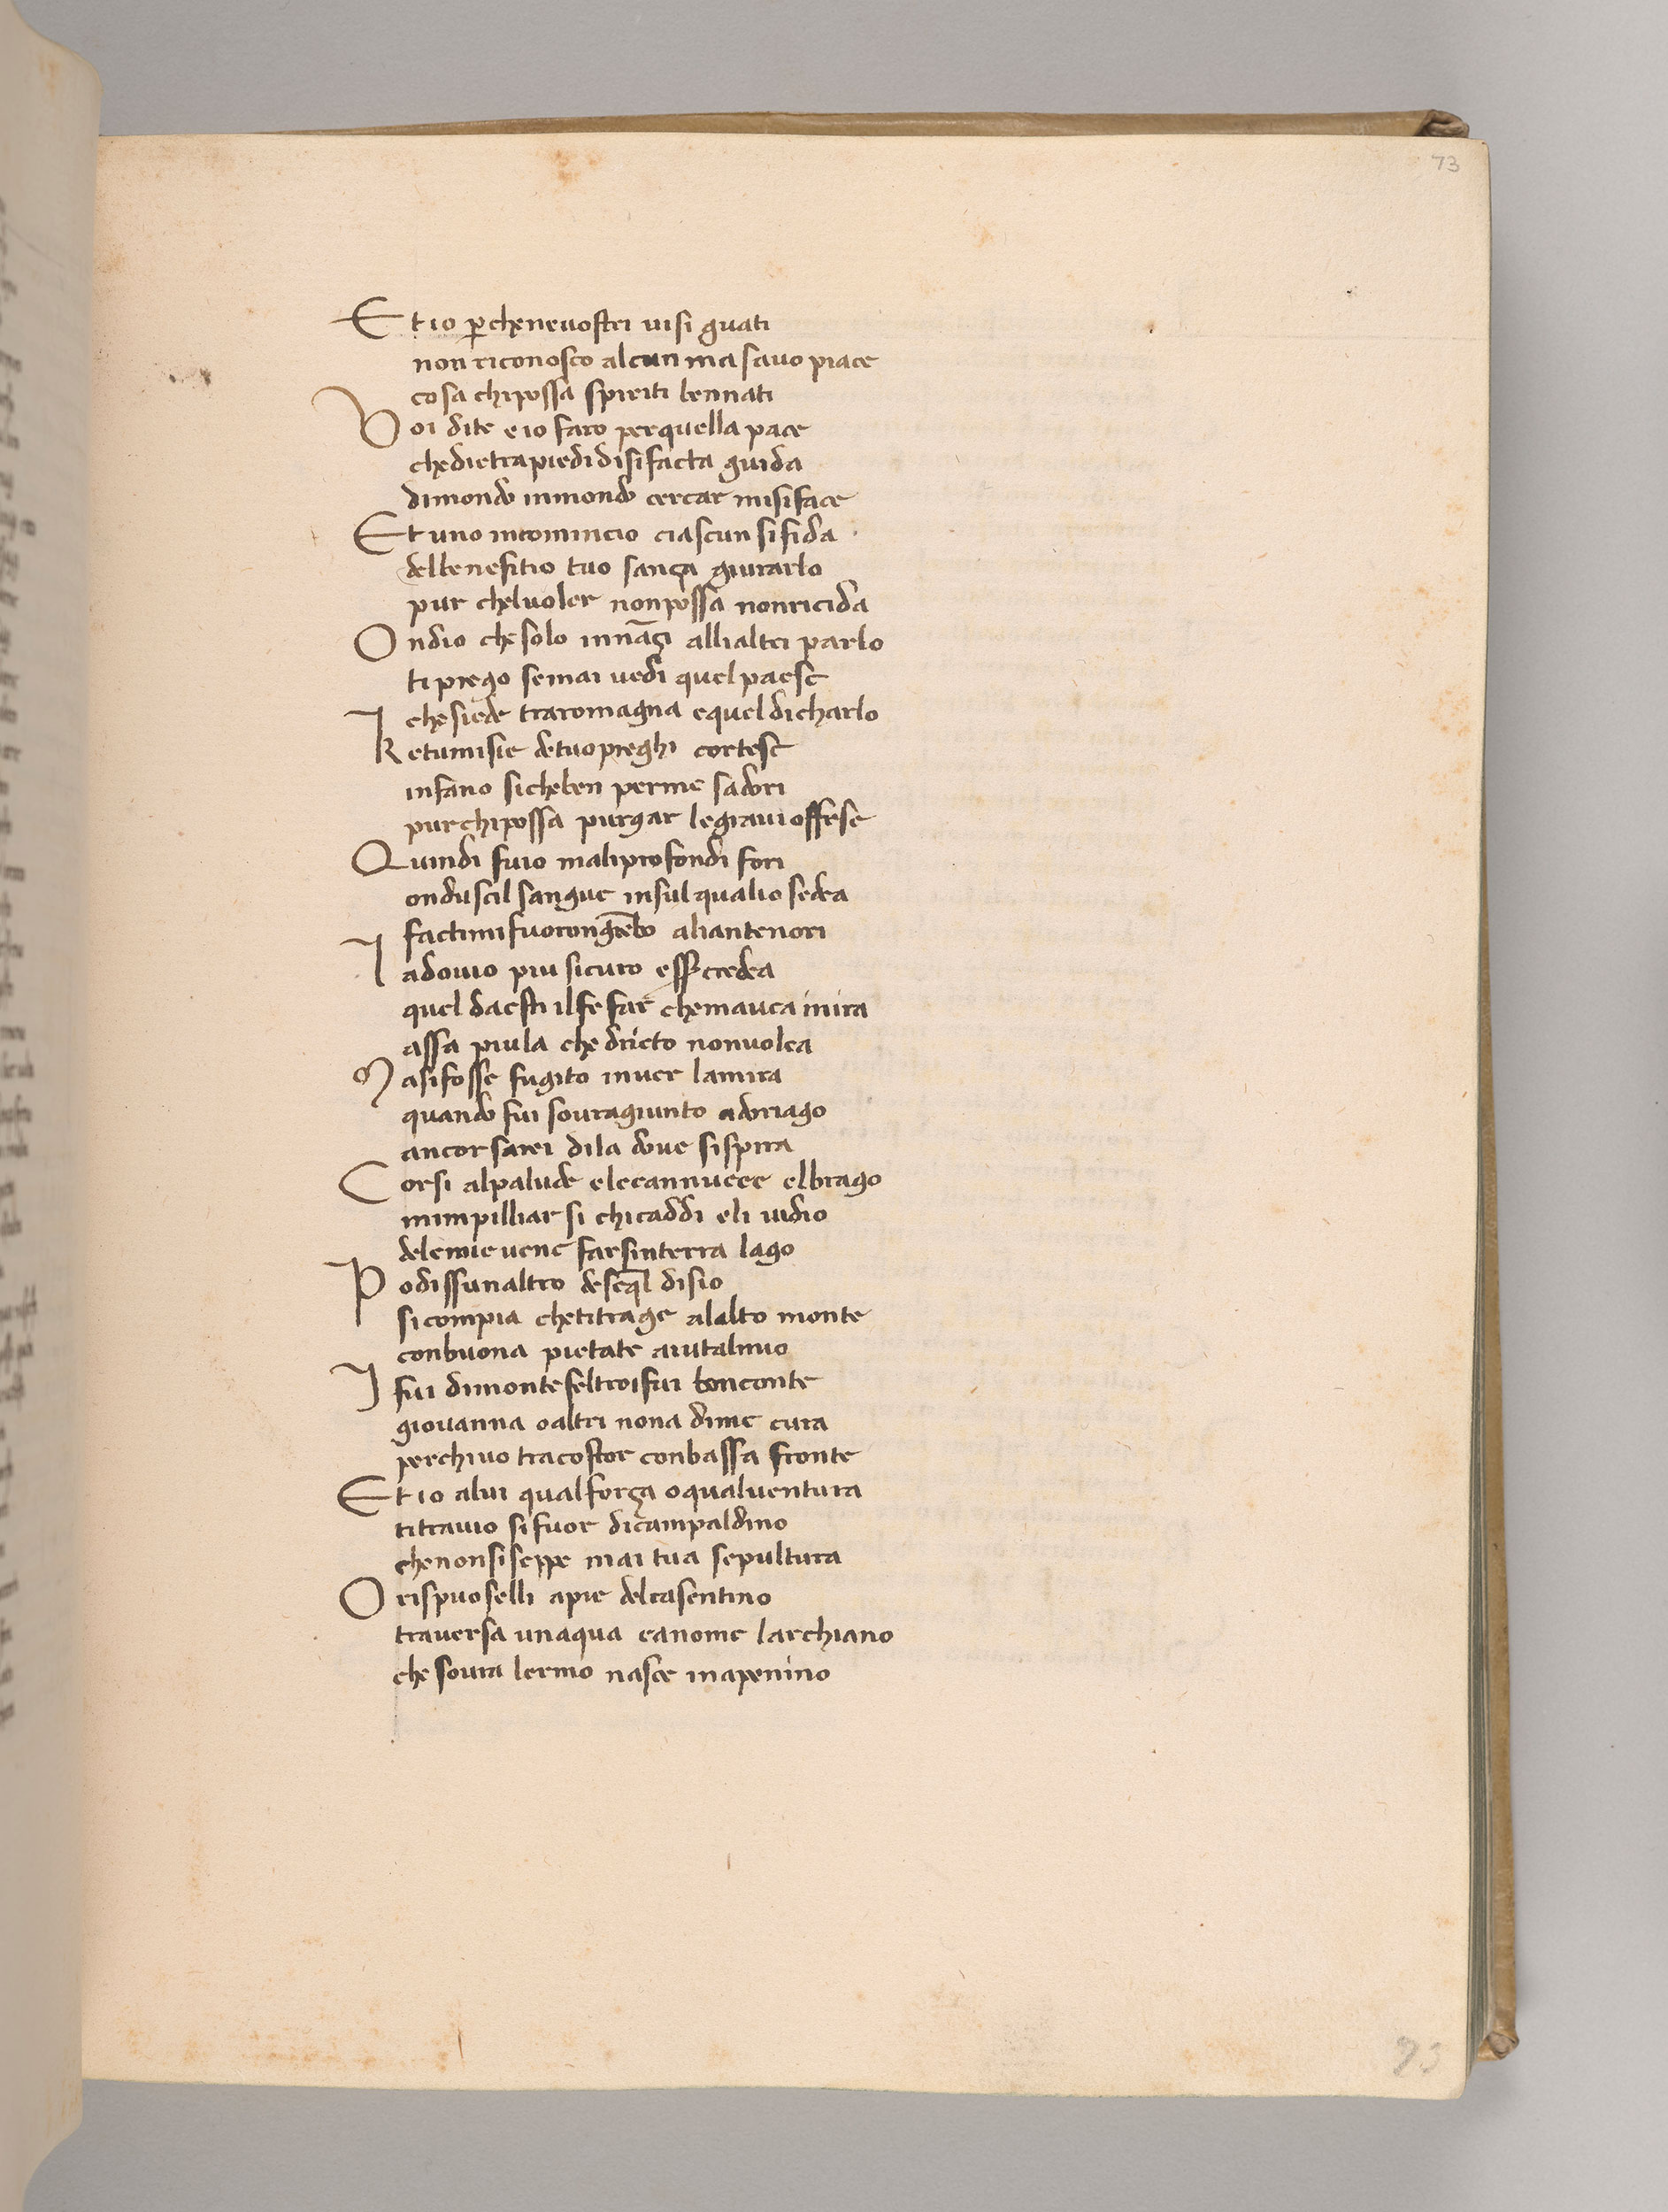 73
Et io ꝑche neuostri uisi guati
non riconosco alcun ma sauo piace
cosa chi possa spiriti bennati
Voi dite e io faro per quella pace
che dietra piedi di si facta guida
di mondo in mondo cercar mi si face
Et uno incomincio ciascun si fida
del benefitio tuo sança giurarlo
pur chel uoler nonpossa non ricida
Ondio che solo innāçi alli altri parlo
ti prego se mai uedi quel paese
che siede tra romagna e quel di charlo
I
Ke tu mi sie de tuo preghi cortese
in fano si che ben per me sadori
pur chi possa purgar le graui offese
Quindi fuio ma li profondi fori
ondusci l sangue in sul qualio sedea
facti mi fuoro in grēbo ali antenori
I
a douio piu sicuro esser credea
quel da esti il fe far che mauea in ira
assa piu la che dricto non uolea
Ma si fosse fugito inuer la mira
quando fui souragiunto a doriago
ancor sarei di la doue si spira
Corsi al palude e le cannucce el brago
mimpilliar si chi caddi e li uidio
dele mie uene farsin terra lago
Po dissunaltro de se q̄l disio
si compia che ti trage al alto monte
con buona pietate aiuta l mio
I
fui di montefeltro i fui bonconte
giouanna o altri non a di me cura
per chi uo tra costor con bassa fronte
Et io a lui qual força o qual uentura
ti trauio si fuor di campaldino
che non si seppe mai tua sepultura
O rispuoselli a pie del casentino
trauersa unaqua ca nome larchiano
che soura lermo nasce in apenino
73